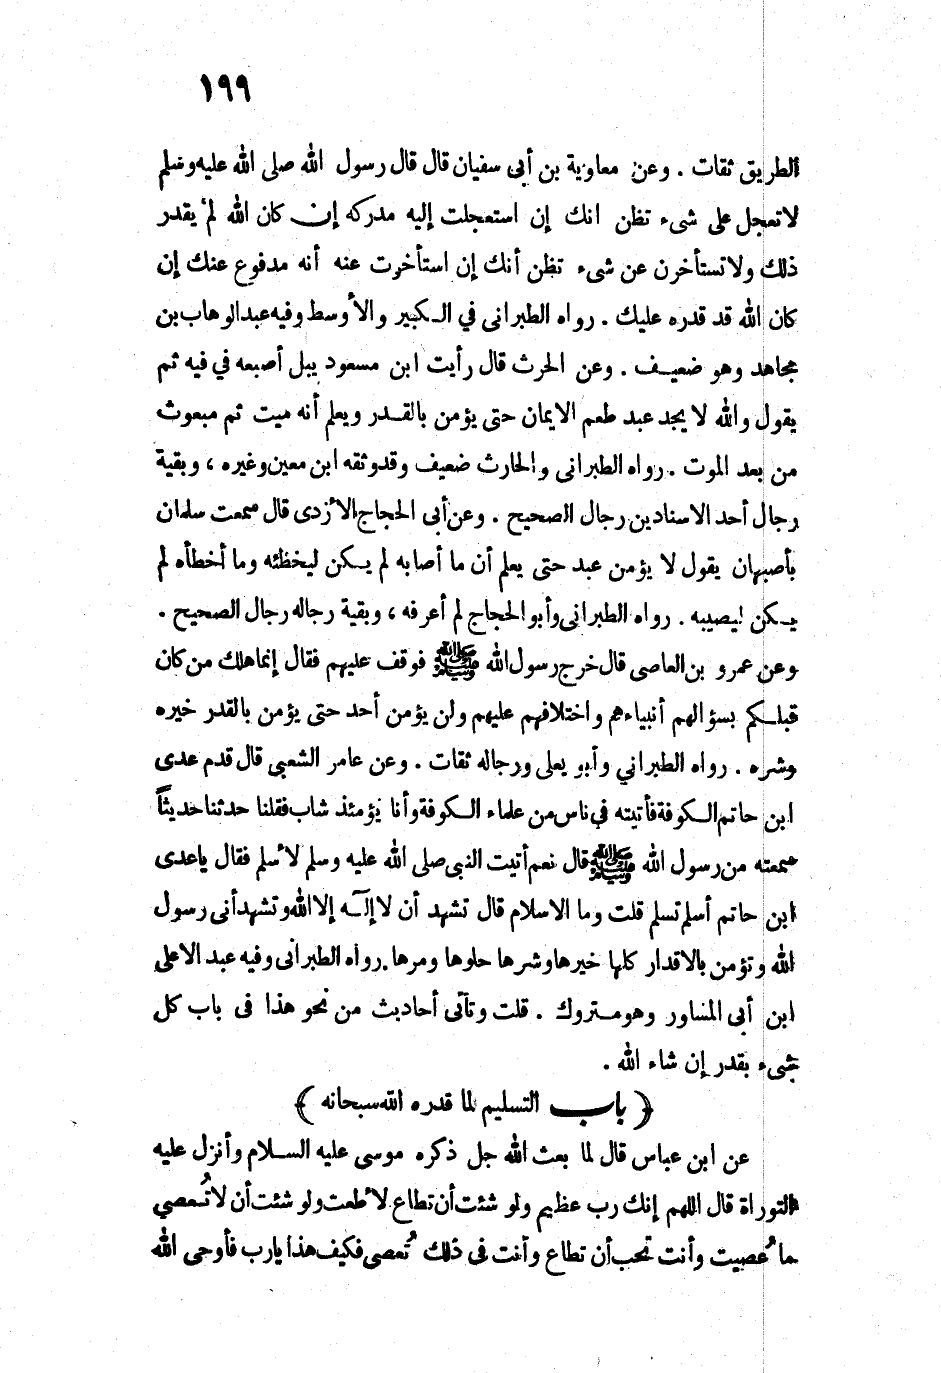 ١٩٩
الطريق ثقات . وعن معاوية بن أبى سفيان قال قال رسول الله صلى الله عليه وسلم
لا تعجل على شىء تظن انك إن استعجلت إليه مدركه إن كان الله لم يقدر
ذلك ولا تستأخرن عن شىء تظن أنك إن استأخرت عنه أنه مدفوع عنك إن
كان الله قد قدره عليك . رواه الطبرانى في الكبير والأوسط وفيه عبدالوهاب بن
مجاهد وهو ضعيف . وعن الحرث قال رأيت ابن مسعود يبل أصبعه في فيه ثم
يقول والله لا يجد عبد طعم الايمان حتى يؤمن بالقدر ويعلم أنه ميت ثم مبعوث
من بعد الموت . رواه الطبرانى والحارث ضعيف وقد وثقه ابن معين وغيره ، وبقية
رجال أحد الاسنادين رجال الصحيح . وعن أبى الحجاج الأزدى قال سمعت سلمان
بأصبهان يقول لا يؤمن عبد حتى يعلم أن ما أصابه لم يكن ليخطئه وما أخطأه لم
يكن ليصيبه . رواه الطبرانى وأبو الحجاج لم أعرفه ، وبقية رجاله رجال الصحيح .
وعن عمرو بن العاصى قال خرج رسول الله ﷺ فوقف عليهم فقال إنما هلك من كان
قبلكم بسؤالهم أنبياءهم واختلافهم عليهم ولن يؤمن أحد حتى يؤمن بالقدر خيره
وشره . رواه الطبراني وأبو يعلى ورجاله ثقات . وعن عامر الشعبى قال قدم عدى
ابن حاتم الكوفة فأتيته في ناس من علماء الكوفة وأنا يؤمئذ شاب فقلنا حدثنا حديثاً
سمعته من رسول الله ﷺ قال نعم أتيت النبى صلى الله عليه وسلم لأسلم فقال يا عدى
ابن حاتم أسلم تسلم قلت وما الاسلام قال تشهد أن لا إله إلا الله وتشهد أنى رسول
الله وتؤمن بالاقدار كلها خيرها وشرها حلوها ومرها . رواه الطبرانى وفيه عبد الاعلى
ابن أبى المساور وهو متروك . قلت وتأتى أحاديث من نحو هذا فى باب كل
شىء بقدر إن شاء الله .
﴿ باب التسليم لما قدره الله سبحانه ﴾
عن ابن عباس قال لما بعث الله جل ذكره موسى عليه السلام وأنزل عليه
التوراة قال اللهم إنك رب عظيم ولو شئت أن تطاع لأطعت ولو شئت أن لا تُعصي
ما عُصيت وأنت تحب أن تطاع وأنت فى ذلك تُعصى فكيف هذا يارب فأوحى الله